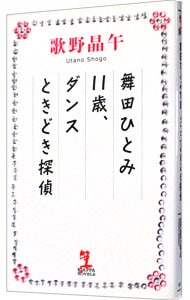 歌野晶午
Utano Shogo
舞田ひとみ
11歳、
ダンス
ときどき探偵
KAPPA
NOVELS